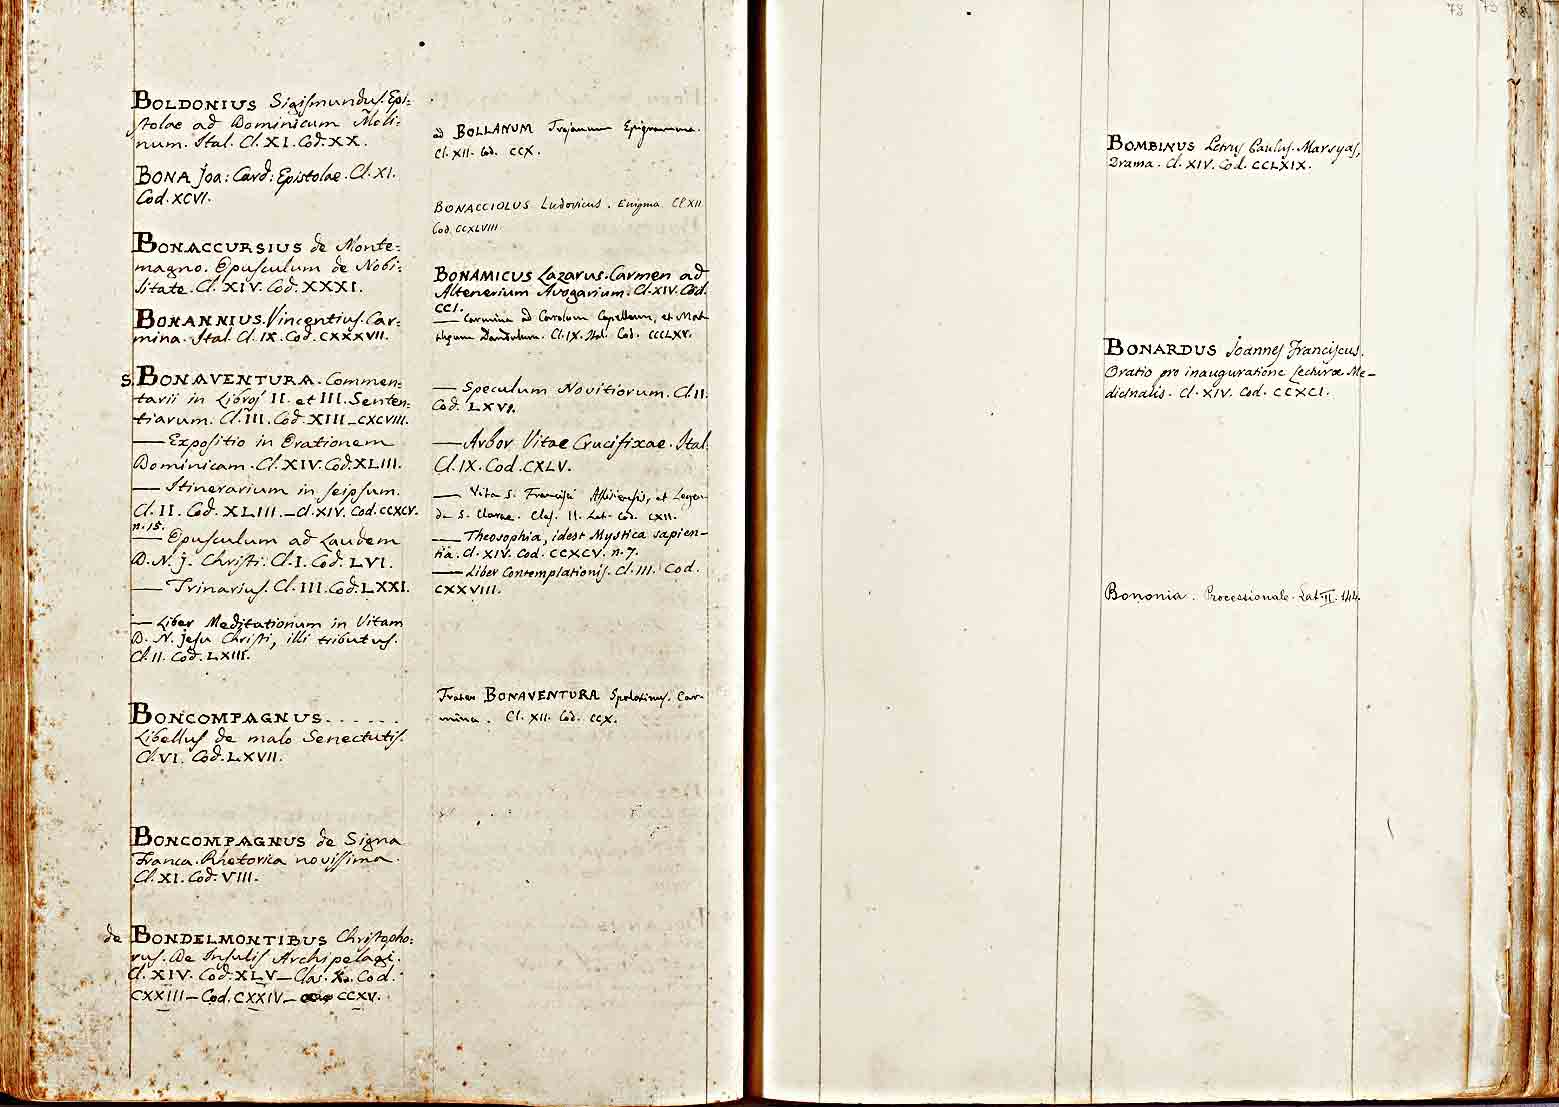 BOLDONIUS Sigismundus. Epi:
stolae ad Dominicum Moli:
num. Ital. Cl. XI. Cod. XX.
BONA Joa: Card: Epistolae. Cl. XI.
Cod. XCVI.
BONACCURSIUS de Monte:
magno. Opusculum de Nobi:
litate. Cl. XIV. Cod. XXXI.
BONANNIUS. Vincentius. Car:
mina. Ital. Cl. IX. Cod. CXXXVII.
S. BONAVENTURA. Commen:
tarii in Libros II. et III. Senten:
tiarum. Cl. III. Cod. XIII_CXCVIII.
— Expositio in Orationem
Dominicam. Cl. XIV. Cod. XLIII.
— Itinerarium in seipsum.
Cl. II. Cod. XLIII. _ Cl. XIV. Cod. CCXCV.
n. 15.
— Opusculum ad Laudem
D. N. J. Christi. Cl. I. Cod. LVI.
— Trinarius. Cl. III. Cod. LXXI.
— Liber Meditationum in Vitam
D. N. Jesu Christi, illi tributus.
Cl. II. Cod. LXIII.
BONCOMPAGNUS. . . . . .
Libellus de malo Senectutis.
Cl. VI. Cod. LXVII.
BONCOMPAGNUS de Signa
Franca. Rhetorica novissima.
Cl. XI. Cod. VIII.
de BONDELMONTIBUS Christopho:
rus. De Insulis Archipelagi.
Cl. XIV. Cod. XLV _ Clas. X. Cod.
CXXIII _ Cod. CXXIV _ CCXV.
ad BOLLANUM Trojanum Epigramma.
Cl. XII. Cod. CCX.
BONACCIOLUS Ludovicus. Enigma Cl XII
Cod. CCXLVIII
BONAMICUS Lazarus. Carmen ad
Altenerium Avogarium. Cl. XIV. Cod.
CCI.
— Carmina ad Carolum Capellum, et Mat
thaeum Dandulum. Cl. IX. Ital. Cod. CCCLXV.
— Speculum Novitiorum. Cl. II.
Cod. LXVI.
— Arbor Vitae Crucifixae. Ital.
Cl. IX. Cod. CXLV.
— Vita S. Francisci Assisiensis, et Legen
da S. Clarae. Clas. II. Lat. Cod. CXII.
— Theosophia, idest Mystica sapien-
tia. Cl. XIV. Cod. CCXCV. n. 7.
— Liber Contemplationis. Cl. III. Cod.
CXXVIII.
Frater BONAVENTURA Spolatinus. Car-
mina. Cl. XII. Cod. CCX.
78
BOMBINUS Petrus Paulus. Marsyas,
Drama. Cl. XIV. Cod. CCLXIX.
BONARDUS Joannes Franciscus.
Oratio pro inauguratione Lecturae Me-
dicinalis. Cl. XIV. Cod. CCXCI.
Bononia. Processionale. Lat. II. 144.